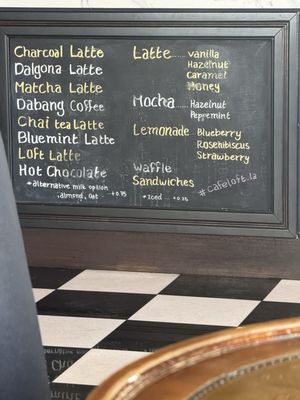 Charcoal Latte
Dalgona Latte
Matcha Latte
Dabang Coffee
Chai tea Latte
Bluemint Latte
Loft Latte
Hot Chocolate
*alternative milk option
almond, Oat ... +0.75
Latte ..... vanilla
Hazelnut
Caramel
Honey
Mocha ..... Hazelnut
Peppermint
Lemonade Blueberry
Rosehibiscus
Strawberry
Waffle
Sandwiches
*Iced ..... +0.25
#cafeloft.la